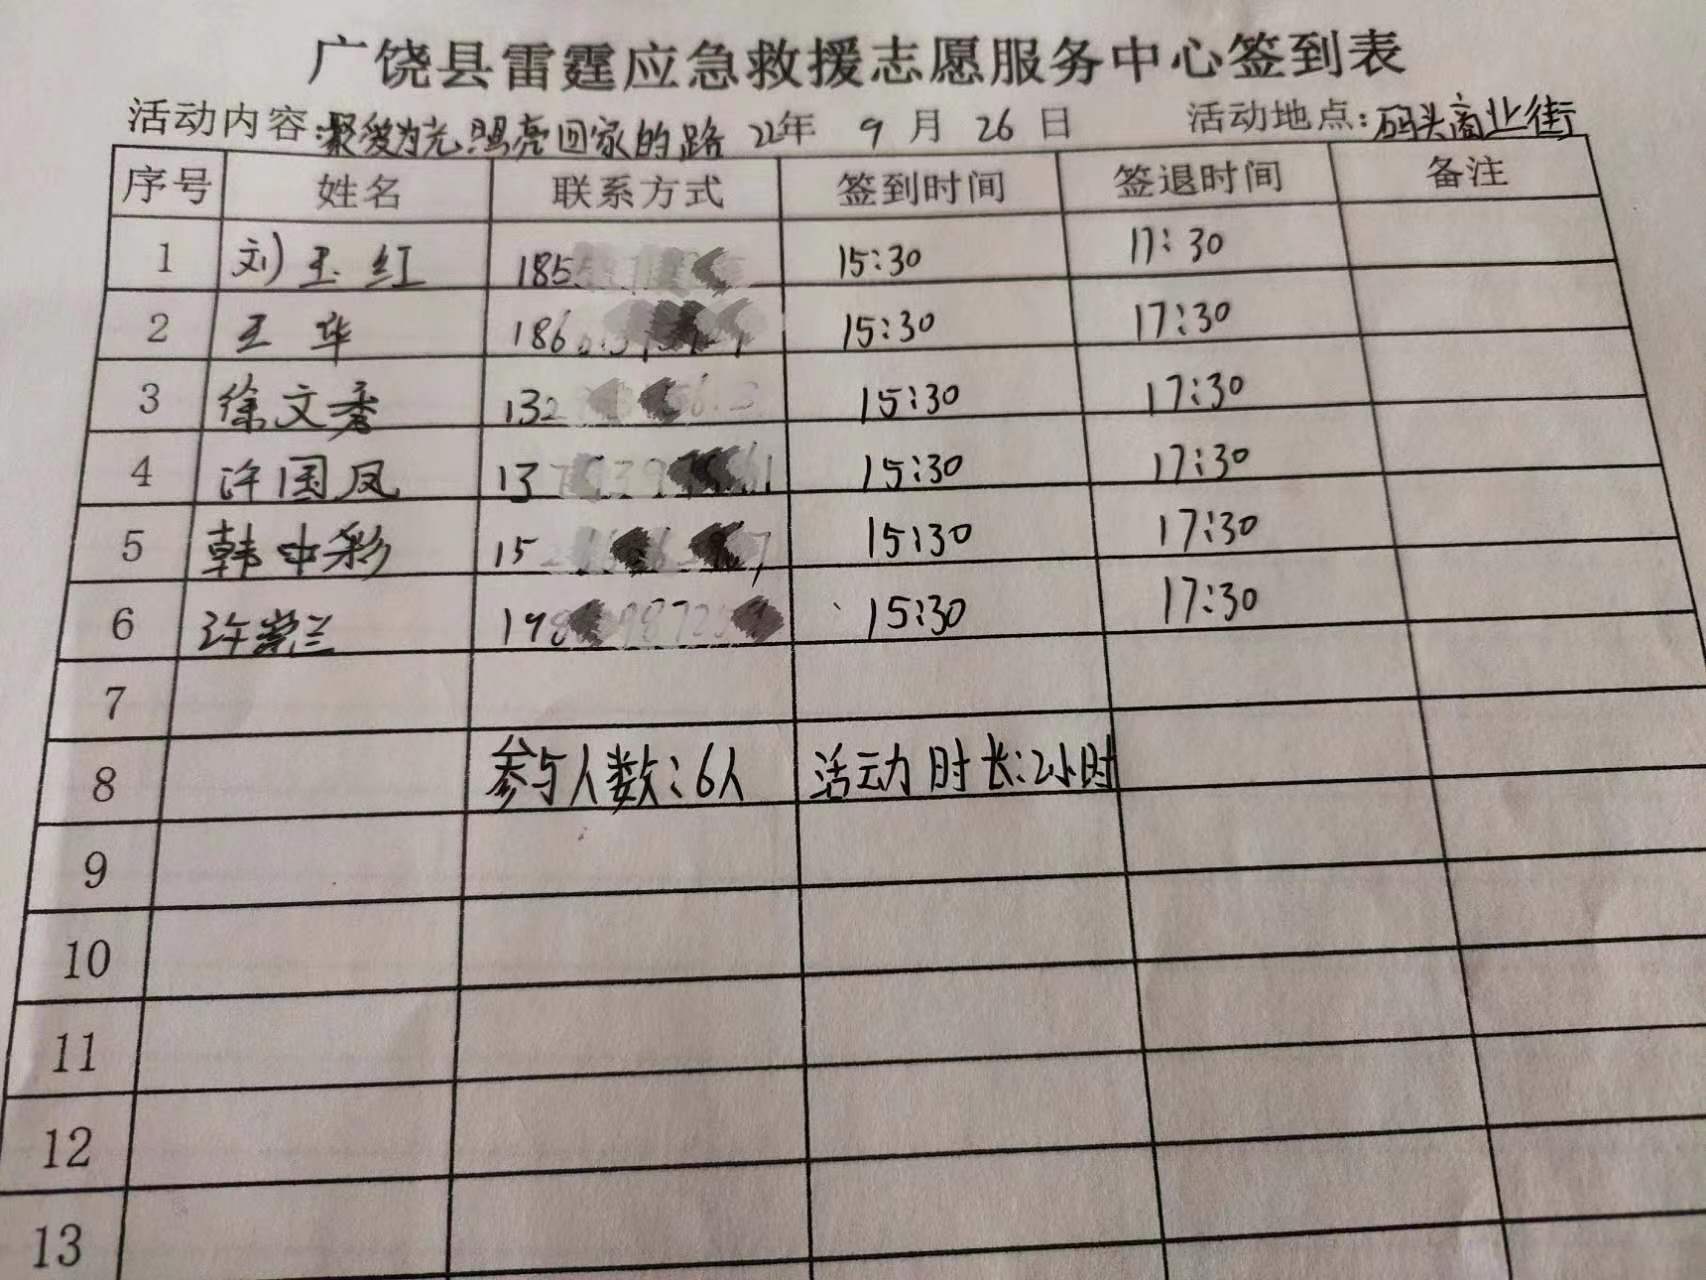 广饶县雷霆应急救援志愿服务中心签到表
活动内容:凝爱为光照亮回家的路 22年 9月 26日 活动地点:码头商业街
序号 姓名 联系方式 签到时间 签退时间 备注
1 刘玉红 185 15:30 17:30
2 王华 186 15:30 17:30
3 徐文秀 132 15:30 17:30
4 许国凤 137 15:30 17:30
5 韩中彩 15 15:30 17:30
6 许崇兰 198 15:30 17:30
7
8 参与人数:6人 活动时长:2小时
9
10
11
12
13